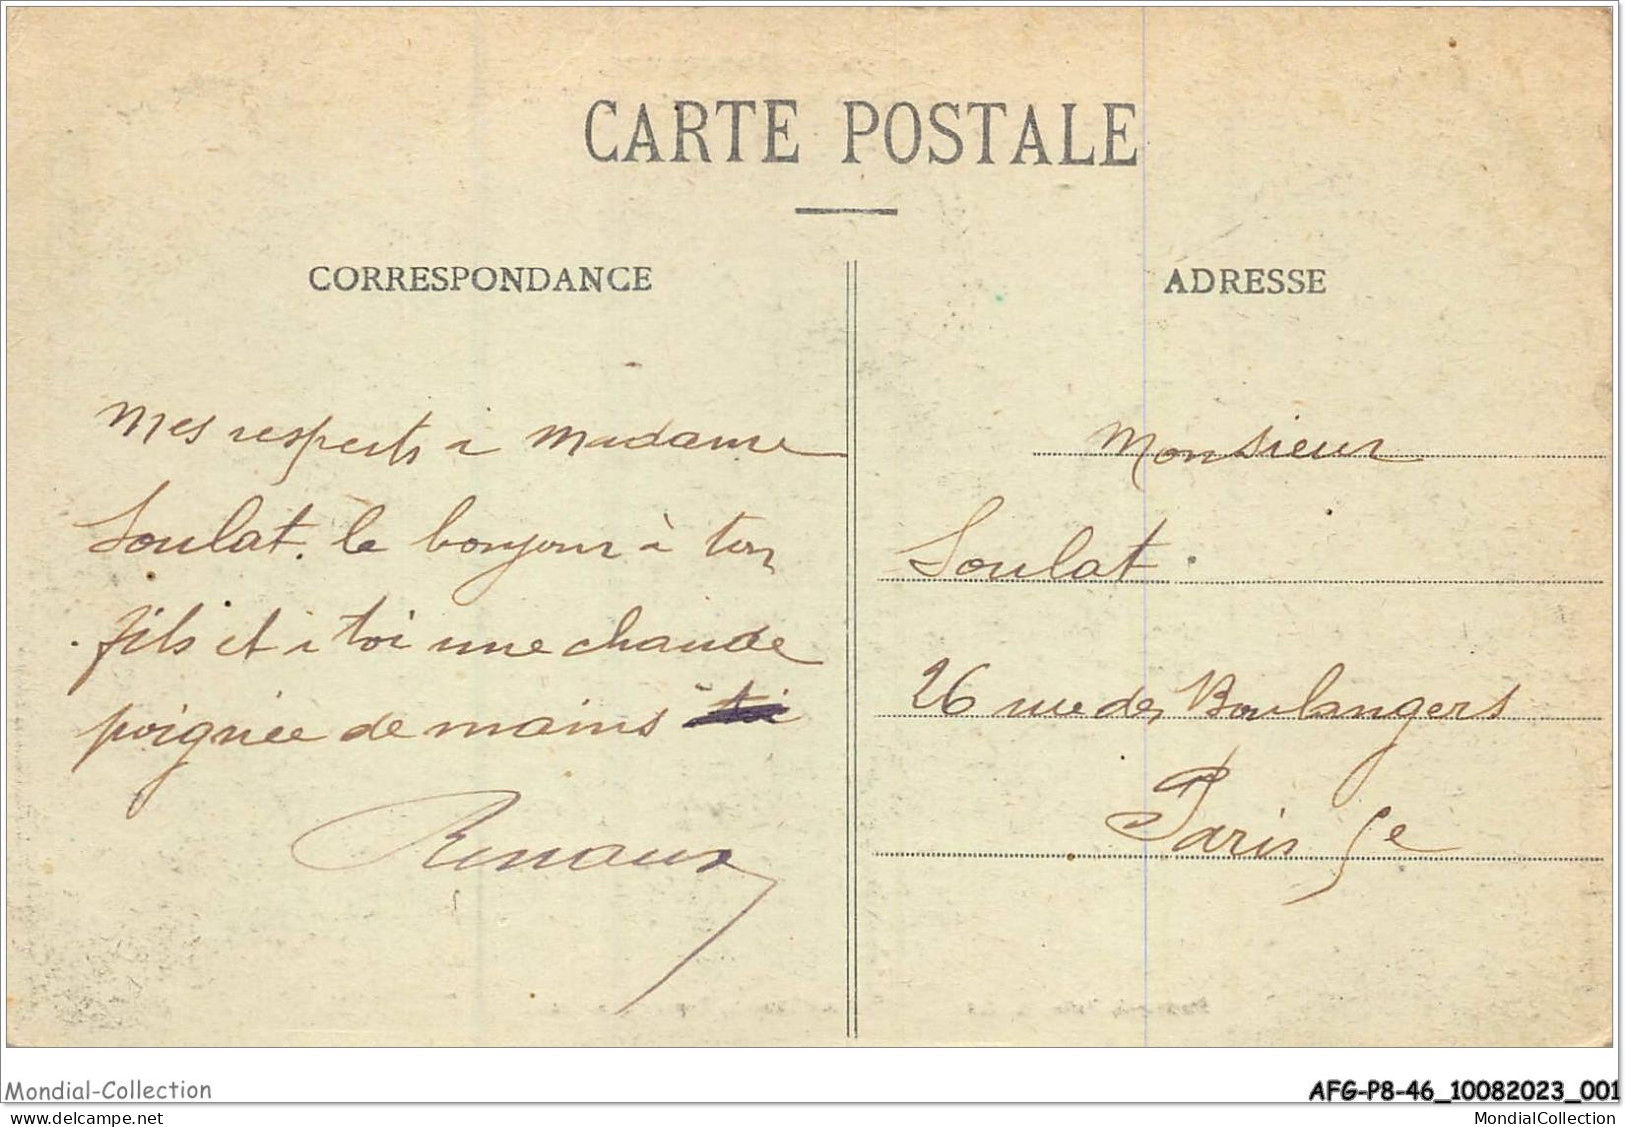 CARTE POSTALE
CORRESPONDANCE
Mes respects à Madame
Soulat. le bonjour à ton
fils et à toi une chaude
poignée de mains
Renaux
ADRESSE
Monsieur
Soulat
26 rue des Boulangers
Paris 5e
Mondial-Collection
AFG-P8-46_10082023_001
MondialCollection.eu
MondialCollection